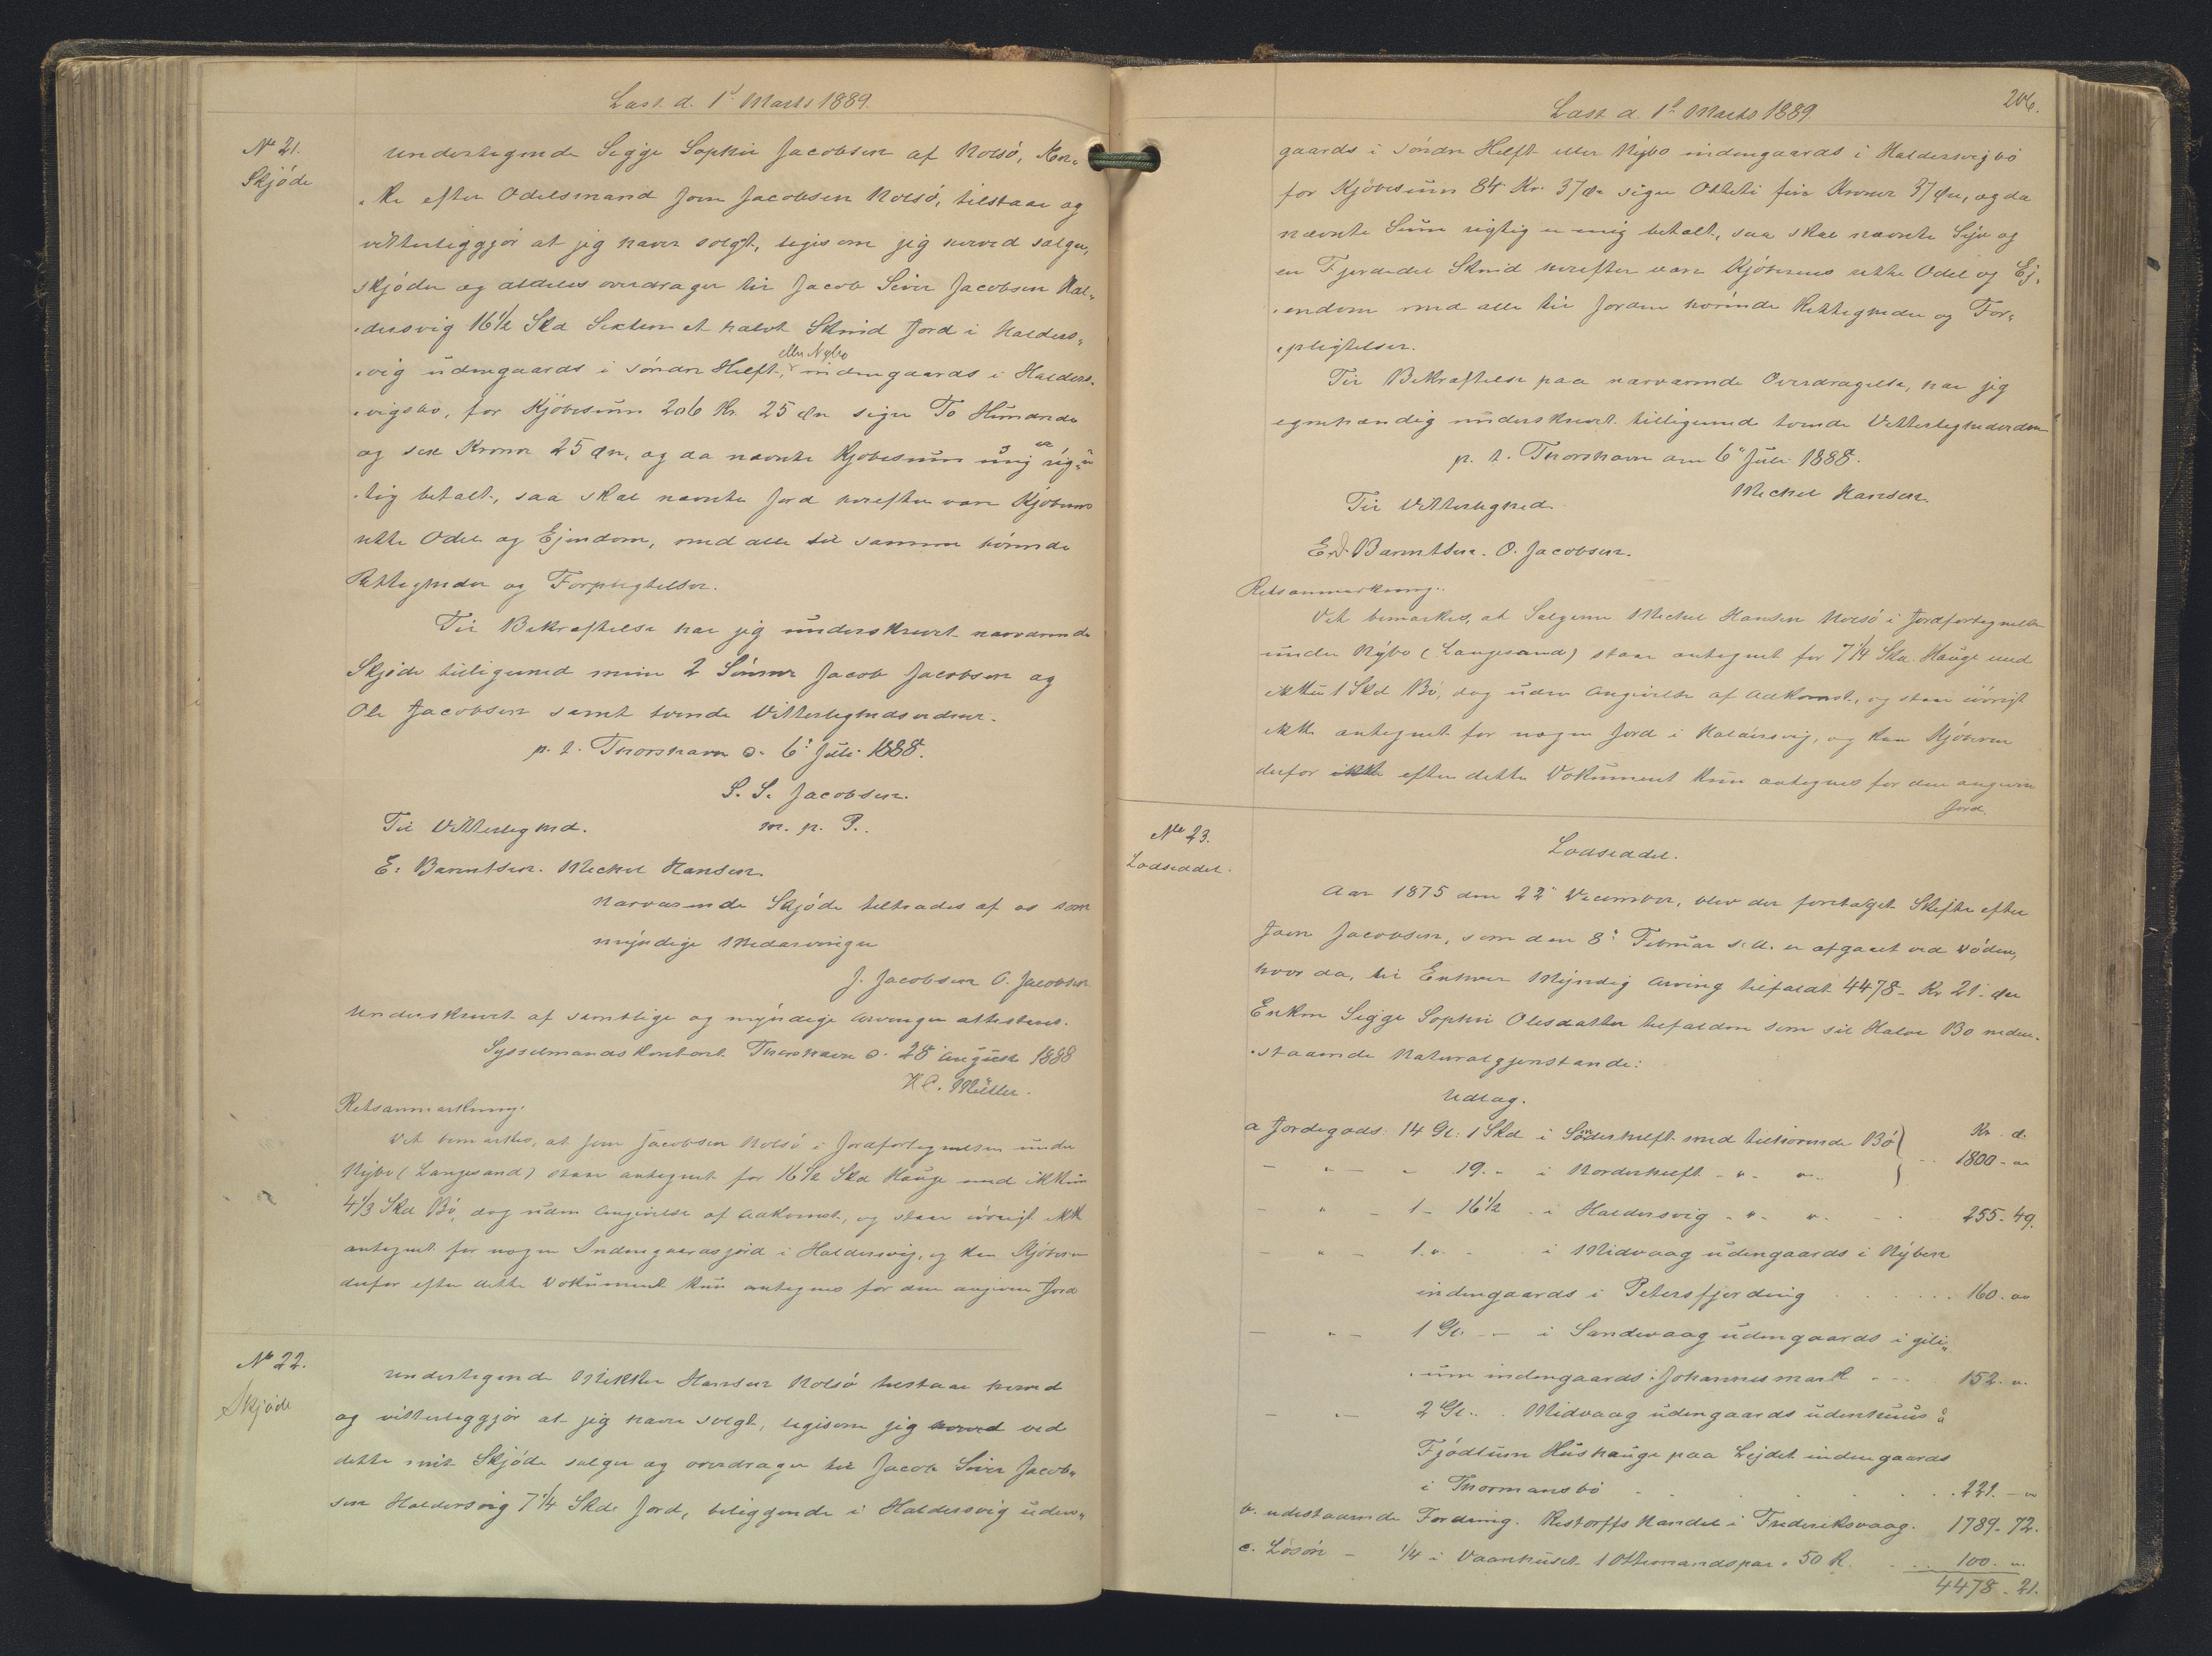 Læst d. 1ᵈ Marts 1889.
Nº 21.
Skjöde
Undertegnede Sigge Sophie Jacobsen af Nolsö, En-
-ke efter Odelsmand Joen Jacobsen Nolsö, tilstaar og
vitterliggjör at jeg haver solgt, ligesom jeg herved sælger,
skjöder og aldeles overdrager til Jacob Siver Jacobsen Hal-
-dersvig 16½ Skd Sexten et halvt Skind Jord i Halders-
eller Nybo
-vig udengaards i söndre Helft, indengaards i Halders-
-vigsbo, for Kjöbesum 206 Kr. 25 Øre siger To Hundrede
og sex Kroner 25 Øre, og da nævnte Kjöbesum er mig rig-
-tig betalt, saa skal nævnte Jord herefter være Kjöberens
rette Odel og Ejendom, med alle til samme hörende
Rettigheder og Forpligtelser.
Til Bekræftelse har jeg underskrevet nærværende
Skjöde tilligemed mine 2 Sönner Jacob Jacobsen og
Ole Jacobsen samt tvende Vitterlighedsvidner.
p. t. Thorshavn d. 6' Juli 1888.
S. S. Jacobsen.
Til Vitterlighed. m. p. P.
E. Barentsen. Michel Hansen.
Nærværende Skjöde tiltrædes af os som
myndige Medarvinger
J. Jacobsen O. Jacobsen
Underskrevet af samtlige og myndige Arvinger attesteres.
Sysselmandskontoret Thorshavn d. 28 August 1888
H. C. Müller.
Retsanmærkning.
Det bemærkes, at Joen Jacobsen Nolsö i Jordfortegnelsen under
Nybo (Langesand) staar antegnet for 16½ Skd Hauge med ikkun
4⅓ Skd Bö, dog uden Angivelse af Adkomst, og staar iövrigt ikke
antegnet for nogen Indengaardsjord i Haldersvig, og kan Kjöberen
derfor efter dette Dokument kun antegnes for den angivne Jord
Nº 22.
Skjöde
Undertegnede Mikkel Hansen Nolsö tilstaar herved
og vitterliggjör at jeg haver solgt, ligesom jeg herved ved
dette mit Skjöde sælger og overdrager til Jacob Siver Jacob-
sen Haldersvig 7¼ Skd. Jord, beliggende i Haldersvig uden-
206.
Læst d. 1ᵈ Marts 1889.
gaards i söndre Helft eller Nybo indengaards i Haldersvigbö
for Kjöbesum 84 Kr. 37 Ø siger Otteti fire Kroner 37 Øre, og da
nævnte Sum rigtig er mig betalt, saa skal nævnte Syv og
en Fjerdedel Skind herefter være Kjöberens rette Odel og Ej-
-endom med alle til Jorden hörende Rettigheder og For-
-pligtelser.
Til Bekræftelse paa nærværende Overdragelse, har jeg
egenhændig underskrevet tilligemed tvende Vitterlighedsvidner
p. t. Thorshavn den 6' Juli 1888.
Michel Hansen.
Til Vitterlighed.
E. Barentsen. O. Jacobsen.
Retsanmærkning.
Det bemærkes, at Sælgeren Michel Hansen Nolsö i Jordfortegnelsen
under Nybo (Langesand) staar antegnet for 7¼ Skd. Hauge med
ikkun 1 Skd Bö, dog uden Angivelse af Adkomst, og staar iövrigt
ikke antegnet for nogen Jord i Haldersvig, og kan Kjöberen
derfor ikke efter dette Dokument kun antegnes for den angivne
Jord.
Nº 23.
Lodseddel.
Lodseddel.
Aar 1875 den 22' December, blev der foretaget Skifte efter
Joen Jacobsen, som den 8' Februar s. A. er afgaaet ved Döden,
hvor da, til Enhver Myndig Arving tilfaldt 4478 - Kr 21 - Øre
Enken Sigge Sophie Olesdatter tilfalden som sit Halve Bo neden-
-staaende Naturalgjenstande:
Udlæg.
a Jordegods: 14 Gl. 1 Skd i Söndrehelft med tilhörende Bö Kr. Ø.
- " - " 19. " i Norderhelft - " - " 1800 - "
- " - 1 - 16½ - i Haldersvig - " - " 255 - 49.
- " - 1. " - i Midvaag udengaards i Nyben
indengaards i Petersfjerding 160. "
- " - 1 Gl. - i Sandevaag udengaards i gili-
-um indengaards i Johannesmark 152. "
- " - 2 Gl. . Midvaag udengaards udenhuus á
Fjödlum Hushauge paa Lejdet indengaards
i Thormansbö 221. - "
b. udestaaende Fordring. Restorffs Handel i Frederiksvaag. 1789 - 72.
c. Lösöre - ¼ i Vaanhuset 1 Ottemandsfar . 50 K. 100. "
4478 - 21.